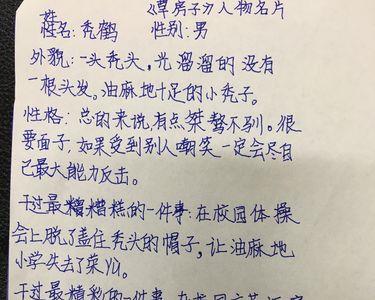 《草房子》人物名片
姓名:秃鹤 性别:男
外貌:一头秃头,光溜溜的没有
一根头发。油麻地十足的小秃子。
性格:总的来说,有点桀骜不驯。很
要面子,如果受到别人嘲笑一定会尽自
己最大能力反击。
干过最糟糕的一件事:在校园体操
会上脱了盖住秃头的帽子,让油麻地
小学失去了荣
干过最精彩的一件事